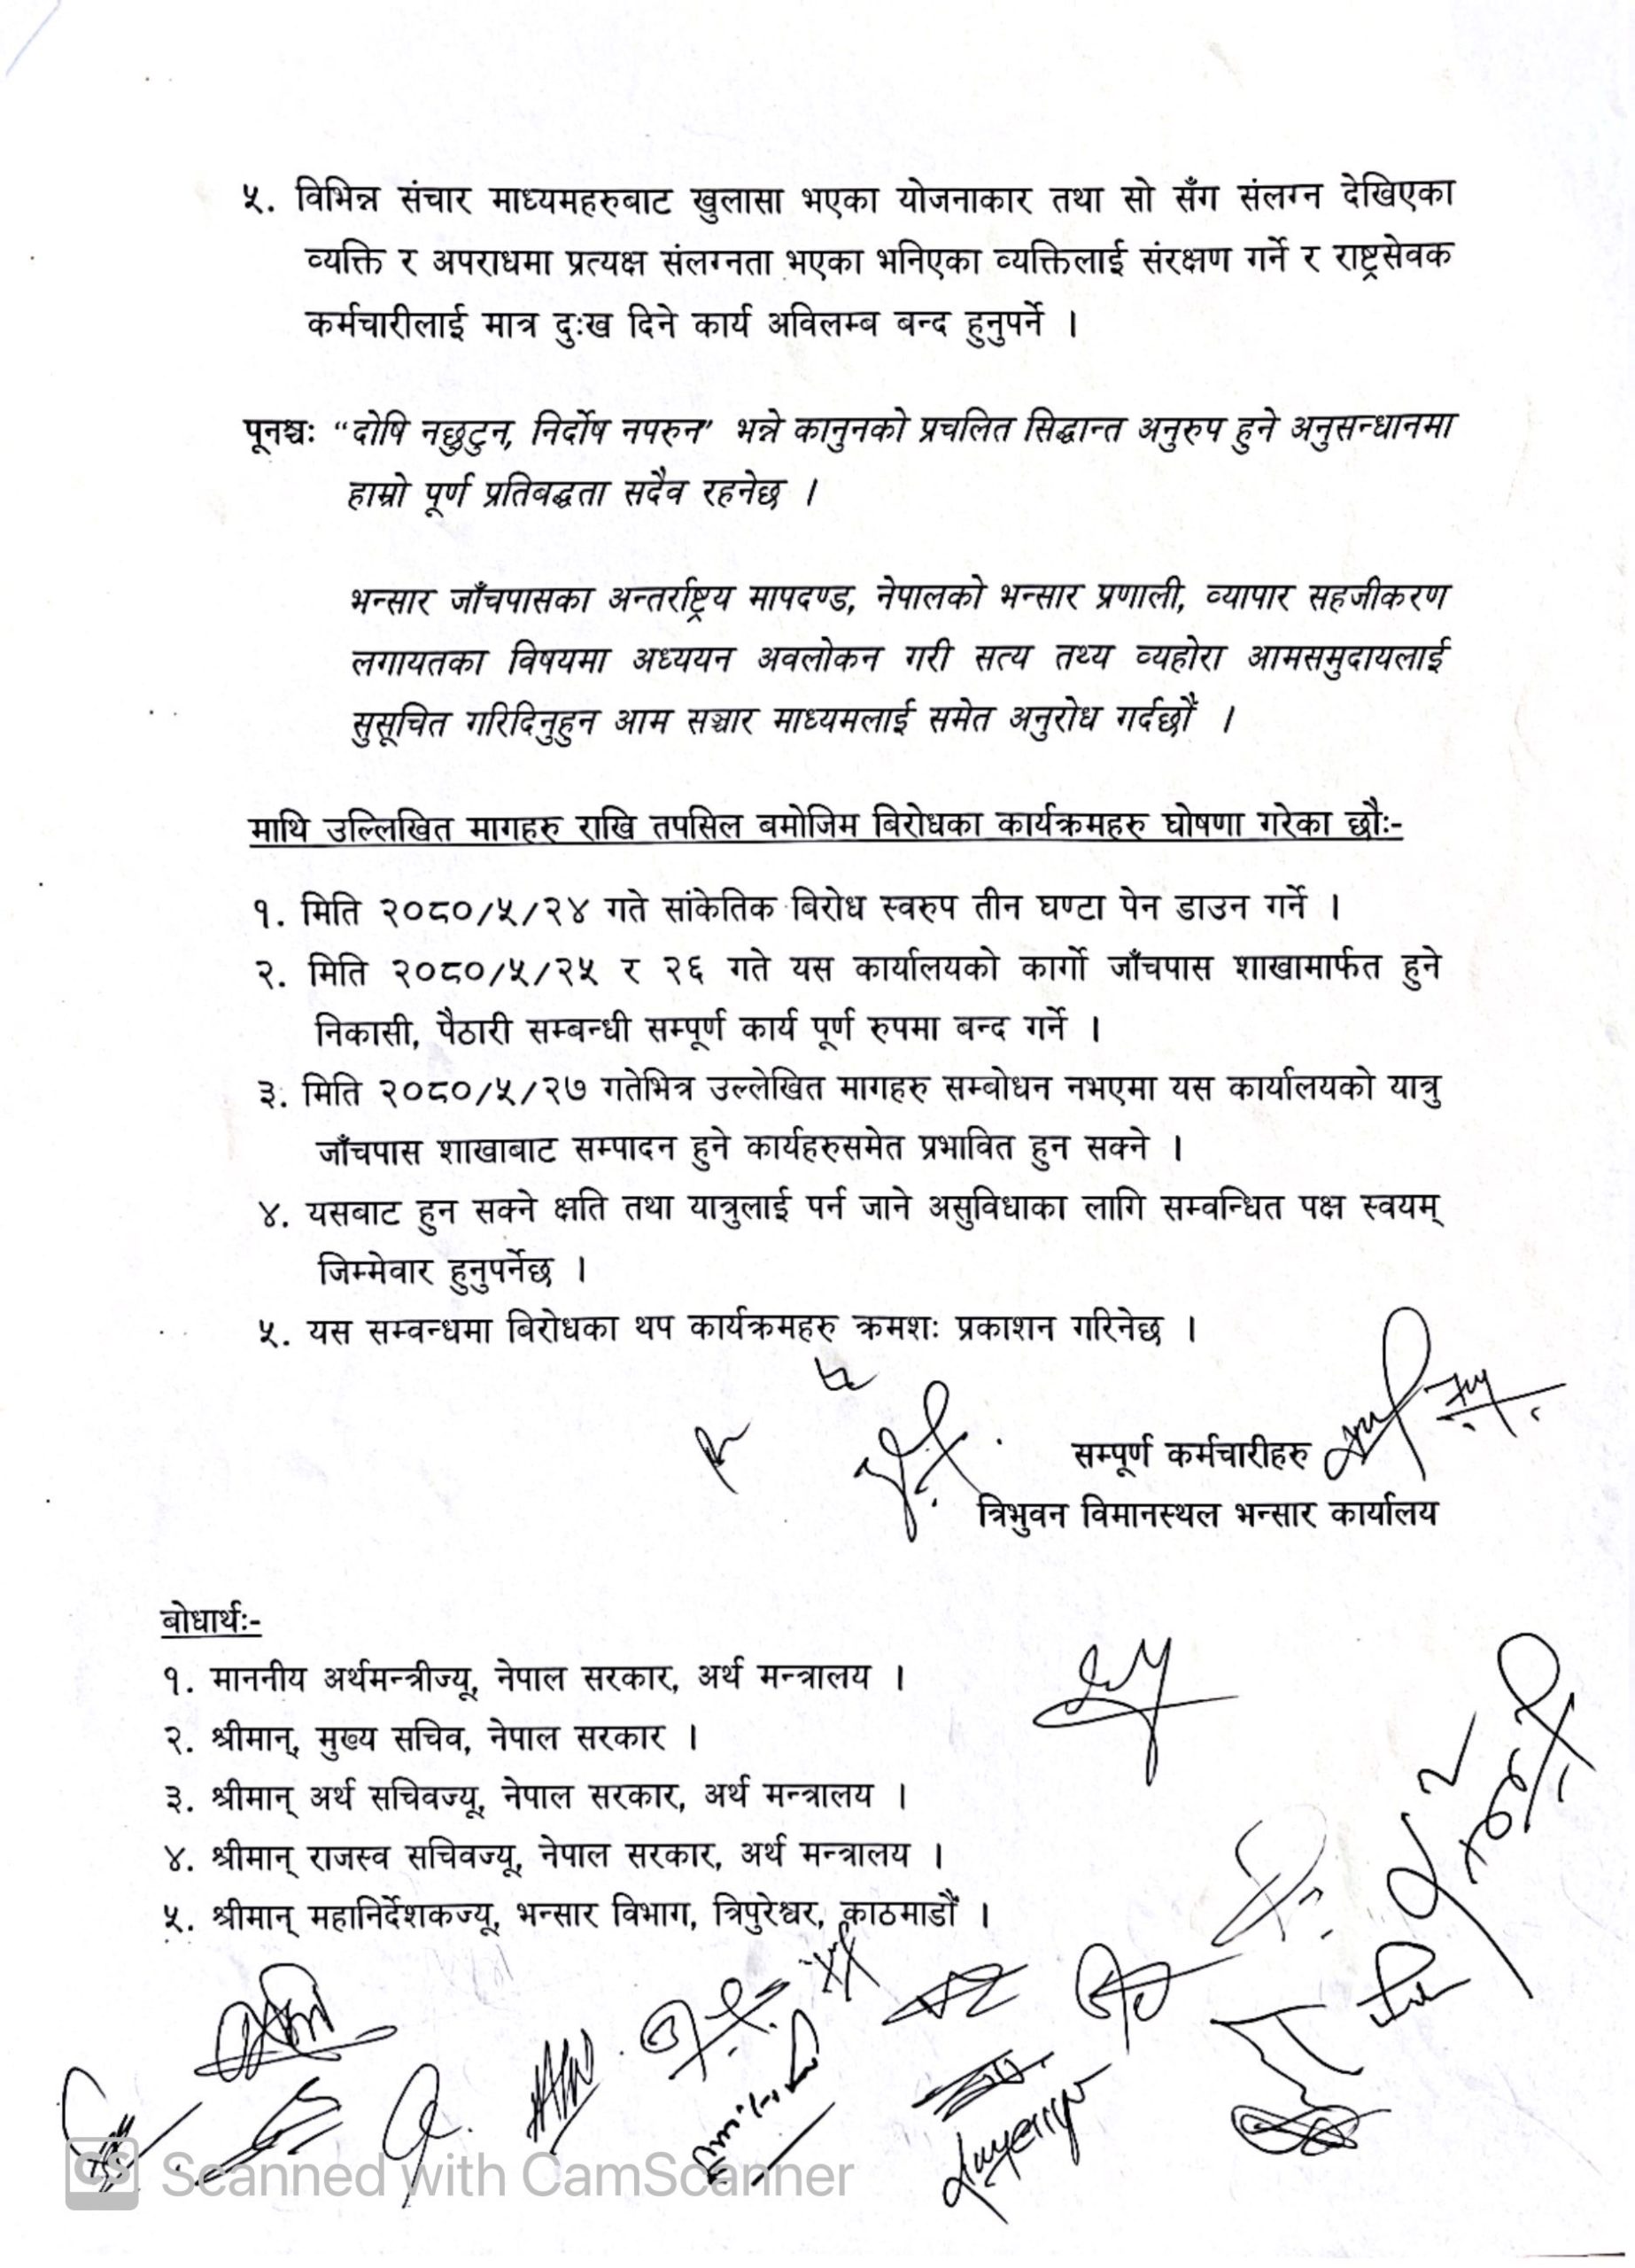 ५. विभिन्न संचार माध्यमहरुबाट खुलासा भएका योजनाकार तथा सो सँग संलग्न देखिएका
व्यक्ति र अपराधमा प्रत्यक्ष संलग्नता भएका भनिएका व्यक्तिलाई संरक्षण गर्ने र राष्ट्रसेवक
कर्मचारीलाई मात्र दुःख दिने कार्य अविलम्ब बन्द हुनुपर्ने ।
पूनश्चः “दोषि नछुटुन, निर्दोष नपरुन” भन्ने कानुनको प्रचलित सिद्धान्त अनुरुप हुने अनुसन्धानमा
हाम्रो पूर्ण प्रतिबद्धता सदैव रहनेछ ।
भन्सार जाँचपासका अन्तर्राष्ट्रिय मापदण्ड, नेपालको भन्सार प्रणाली, व्यापार सहजीकरण
लगायतका विषयमा अध्ययन अवलोकन गरी सत्य तथ्य व्यहोरा आमसमुदायलाई
सुसूचित गरिदिनुहुन आम सञ्चार माध्यमलाई समेत अनुरोध गर्दछौं ।
माथि उल्लिखित मागहरु राखि तपसिल बमोजिम बिरोधका कार्यक्रमहरु घोषणा गरेका छौः-
१. मिति २०८०/५/२४ गते सांकेतिक बिरोध स्वरुप तीन घण्टा पेन डाउन गर्ने ।
२. मिति २०८०/५/२५ र २६ गते यस कार्यालयको कार्गो जाँचपास शाखामार्फत हुने
निकासी, पैठारी सम्बन्धी सम्पूर्ण कार्य पूर्ण रुपमा बन्द गर्ने ।
३. मिति २०८०/५/२७ गतेभित्र उल्लेखित मागहरु सम्बोधन नभएमा यस कार्यालयको यात्रु
जाँचपास शाखाबाट सम्पादन हुने कार्यहरुसमेत प्रभावित हुन सक्ने ।
४. यसबाट हुन सक्ने क्षति तथा यात्रुलाई पर्न जाने असुविधाका लागि सम्वन्धित पक्ष स्वयम्
जिम्मेवार हुनुपर्नेछ ।
५. यस सम्वन्धमा बिरोधका थप कार्यक्रमहरु क्रमशः प्रकाशन गरिनेछ ।
सम्पूर्ण कर्मचारीहरु
त्रिभुवन विमानस्थल भन्सार कार्यालय
बोधार्थः-
१. माननीय अर्थमन्त्रीज्यू, नेपाल सरकार, अर्थ मन्त्रालय ।
२. श्रीमान्, मुख्य सचिव, नेपाल सरकार ।
३. श्रीमान् अर्थ सचिवज्यू, नेपाल सरकार, अर्थ मन्त्रालय ।
४. श्रीमान् राजस्व सचिवज्यू, नेपाल सरकार, अर्थ मन्त्रालय ।
५. श्रीमान् महानिर्देशकज्यू, भन्सार विभाग, त्रिपुरेश्वर, काठमाडौं ।
CS Scanned with CamScanner